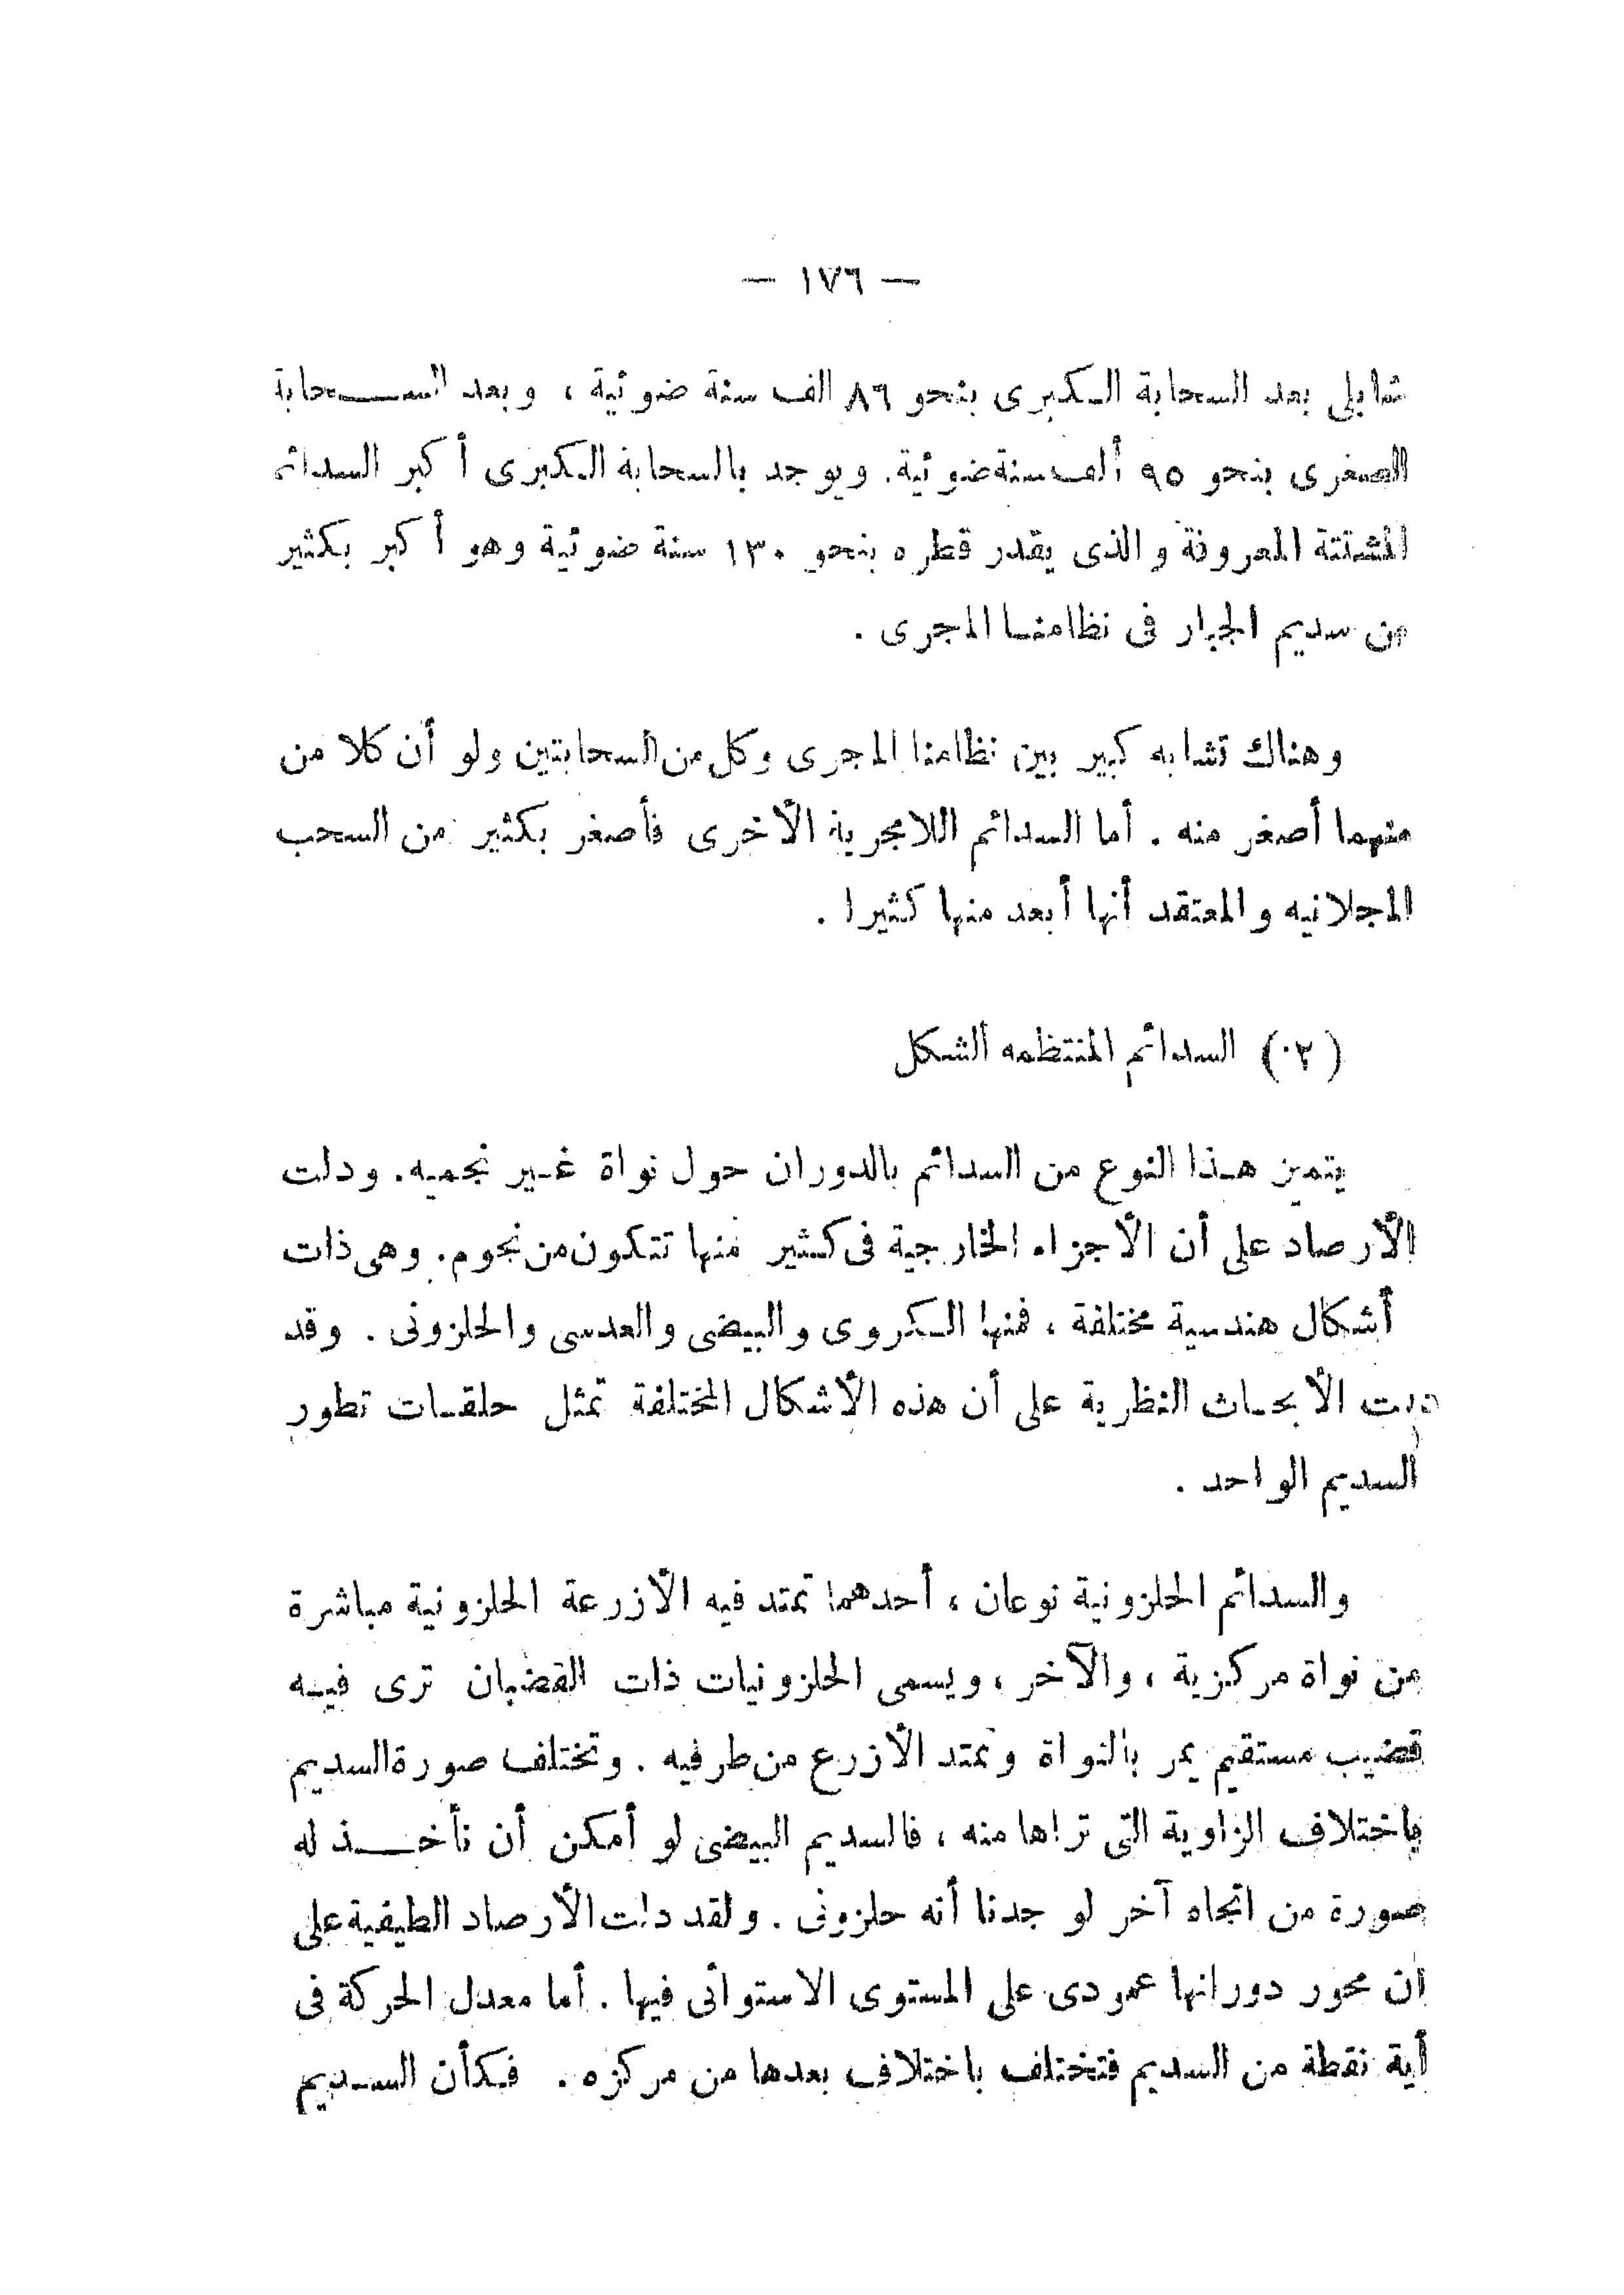 — ١٧٦ —
شابلى بعد السحابة الكبرى بنحو ٨٦ الف سنة ضوئية ، وبعد السحابة
الصغرى بنحو ٩٥ ألف سنة ضوئية. ويوجد بالسحابة الكبرى أكبر السدائم
المشتتة المعروفة والذى يقدر قطره بنحو ١٣٠ سنة ضوئية وهو أكبر بكثير
من سديم الجبار فى نظامنا المجرى .
وهناك تشابه كبير بين نظامنا المجرى وكل من السحابتين ولو أن كلا من
منهما أصغر منه . أما السدائم اللامجرية الأخرى فأصغر بكثير من السحب
المجلانيه والمعتقد أنها أبعد منها كثيرا .
(٢) السدائم المنتظمه الشكل
يتميز هذا النوع من السدائم بالدوران حول نواة غير نجميه. ودلت
الأرصاد على أن الأجزاء الخارجية فى كثير منها تتكون من نجوم. وهى ذات
أشكال هندسية مختلفة ، فمنها الكروى والبيضى والعدسى والحلزونى . وقد
الأبحاث النظرية على أن هذه الأشكال المختلفة تمثل حلقات تطور
السديم الواحد .
والسدائم الحلزونية نوعان ، أحدهما تمتد فيه الأزرعة الحلزونية مباشرة
من نواة مركزية ، والآخر ، ويسمى الحلزونيات ذات القضبان ترى فيه
قضيب مستقيم يمر بالنواة وتمتد الأزرع من طرفيه . وتختلف صورة السديم
باختلاف الزاوية التى تراها منه ، فالسديم البيضى لو أمكن أن نأخذ له
صورة من اتجاه آخر لو جدنا أنه حلزونى . ولقد دلت الأرصاد الطيفية على
أن محور دورانها عمودى على المستوى الاستوائى فيها . أما معدل الحركة فى
أية نقطة من السديم فتختلف باختلاف بعدها من مركزه . فكأن السديم